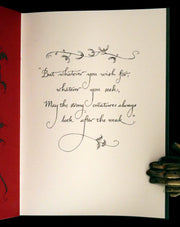 "But whatever you wish for,
whatever you seek,
May the strong creatures always
look after the weak."